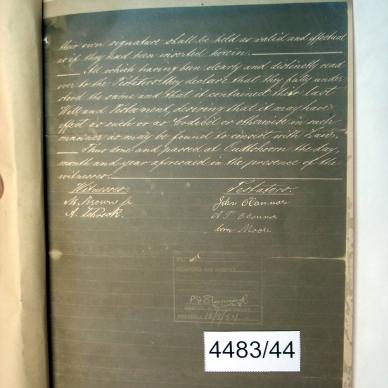 their own signature shall be held as valid and effectual
as if they had been inserted herein.
All which having been clearly and distinctly read
over to the Testators they declare that they fully under
stood the same and that it contained their last
Will and Testament, desiring that it may have
effect as such or as Codicil or otherwise in such
manner as may be found to consist with Law.
Thus done and passed at Oudtshoorn the day
month and year aforesaid in the presence of the
witnesses.
Witnesses Testators.
M. Brown jr John O'Connor
A. O'Connor
born Moore
4483/44